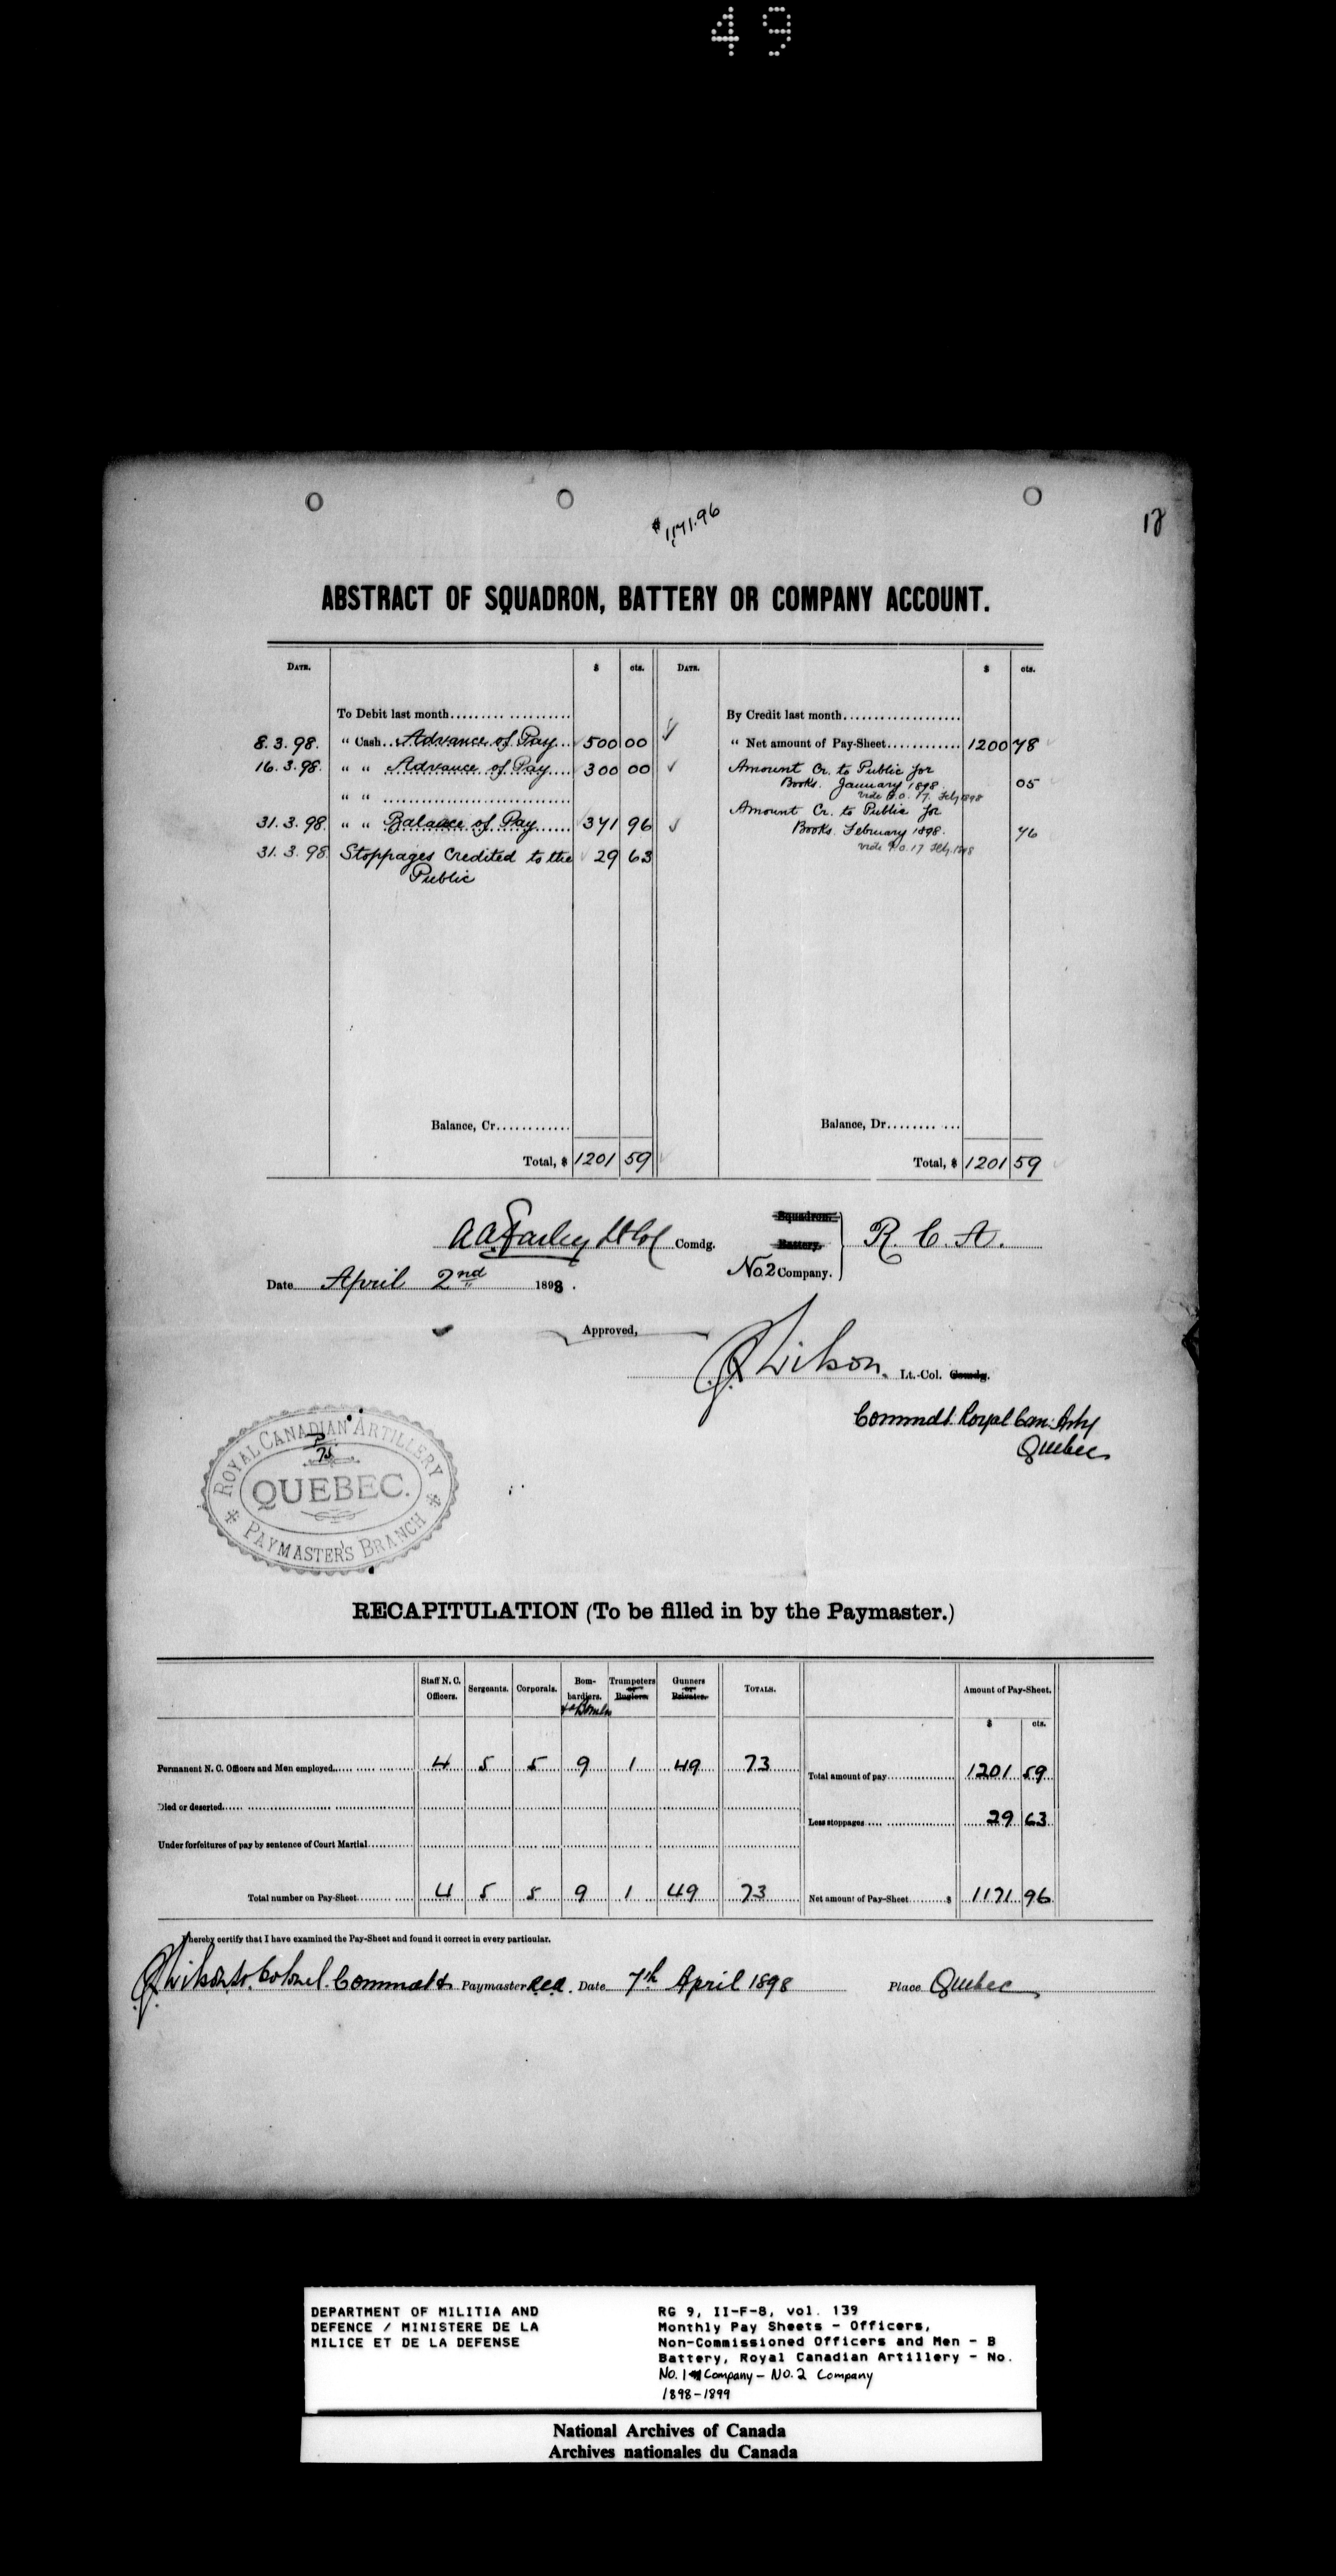 49
$1171.96
18
ABSTRACT OF SQUADRON, BATTERY OR COMPANY ACCOUNT.
DATE. $ cts. DATE. $ cts.
To Debit last month By Credit last month
8.3.98. " Cash Advance of Pay 500 00 " Net amount of Pay-Sheet 1200 78
16.3.98. " " Advance of Pay 300 00 Amount Cr. to Public for
Books. January 1898. 05
" " vide R.O. 17. Feby 1898
Amount Cr. to Public for
31.3.98. " " Balance of Pay 371 96 Books. February 1898. 76
vide R.O. 17 Feby. 1898
31.3.98 Stoppages Credited to the 29 63
Public
Balance, Cr. Balance, Dr.
Total, $ 1201 59 Total, $ 1201 59
Squadron.
A A Farley Lt Col Comdg. Battery. R. C. A.
No. 2 Company.
Date April 2nd 1898.
Approved,
Wilson. Lt.-Col. Comdg.
Commdt Royal Can: Arty
Quebec
ROYAL CANADIAN ARTILLERY
QUEBEC.
PAYMASTER'S BRANCH
RECAPITULATION (To be filled in by the Paymaster.)
Staff N. C. Officers. Sergeants. Corporals. Bombardiers. Trumpeters or Buglers. Gunners or Privates. TOTALS. Amount of Pay-Sheet.
$ cts.
Permanent N. C. Officers and Men employed 4 5 5 9 1 49 73 Total amount of pay 1201 59
Died or deserted Less stoppages 29 63
Under forfeitures of pay by sentence of Court Martial
Total number on Pay-Sheet 4 5 5 9 1 49 73 Net amount of Pay-Sheet $ 1171 96
I hereby certify that I have examined the Pay-Sheet and found it correct in every particular.
Wilson Lt. Colonel. Commdt & Paymaster RCA. Date 7th April 1898 Place Quebec
DEPARTMENT OF MILITIA AND
DEFENCE / MINISTERE DE LA
MILICE ET DE LA DEFENSE
RG 9, II-F-8, vol. 139
Monthly Pay Sheets - Officers,
Non-Commissioned Officers and Men - B
Battery, Royal Canadian Artillery - No.
No. 1 Company - No. 2 Company
1898-1899
National Archives of Canada
Archives nationales du Canada